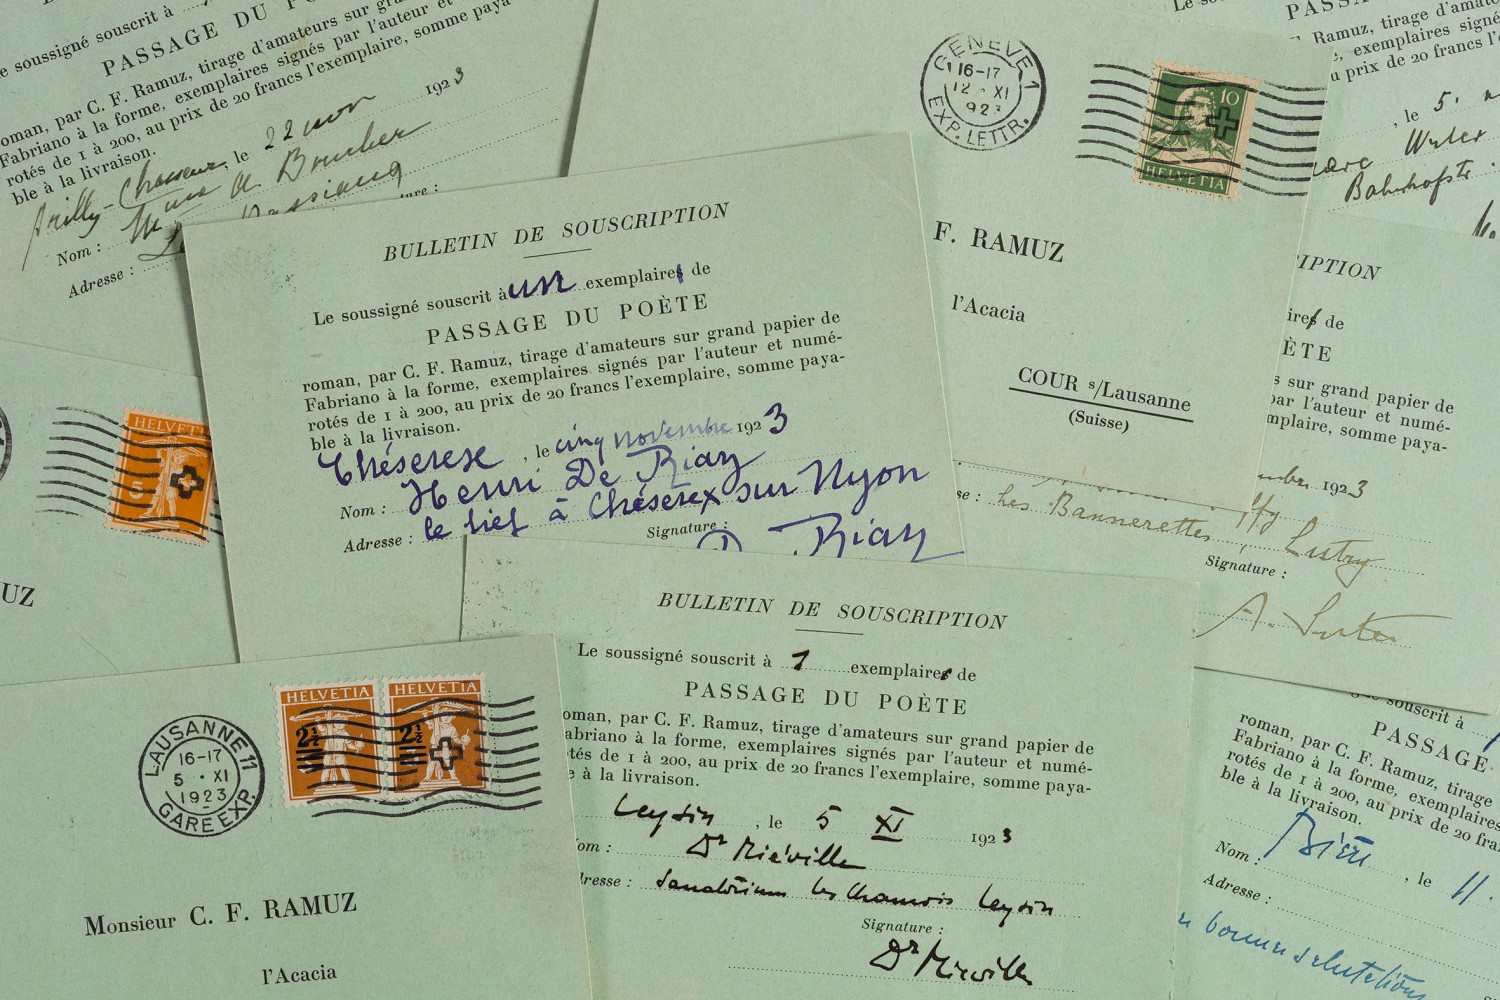 soussigné souscrit à
PASSAGE DU
roman, par C. F. Ramuz, tirage d'amateurs sur
Fabriano à la forme, exemplaires signés par l'auteur et
rotés de 1 à 200, au prix de 20 francs l'exemplaire, somme paya-
ble à la livraison.
le 22 nov 1923
Nom :
Adresse :
BULLETIN DE SOUSCRIPTION
Le soussigné souscrit à un exemplaires de
PASSAGE DU POÈTE
roman, par C. F. Ramuz, tirage d'amateurs sur grand papier de
Fabriano à la forme, exemplaires signés par l'auteur et numé-
rotés de 1 à 200, au prix de 20 francs l'exemplaire, somme paya-
ble à la livraison.
Chéserex, le cinq novembre 1923
Nom : Henri De Riaz
Adresse : le fief à Chéserex sur Nyon
Signature :
Riaz
GENÈVE 1
16-17
12 · XI
192
EXP. LETTR.
10
HELVETIA
F. RAMUZ
l'Acacia
COUR s/Lausanne
(Suisse)
PASSA
Ramuz, tirage d'amate
exemplaires signés
prix de 20 francs
, le 5.
Bahnhofstr.
IPTION
de
ÈTE
sur grand papier de
par l'auteur et numé-
somme paya-
1923
Les Bannerettes Lutry
Signature :
A. Suter
HELVETIA
5
UZ
LAUSANNE 11
16-17
5 · XI
1923
GARE EXP.
HELVETIA HELVETIA
2½ 2½
Monsieur C. F. RAMUZ
l'Acacia
BULLETIN DE SOUSCRIPTION
Le soussigné souscrit à 1 exemplaires de
PASSAGE DU POÈTE
oman, par C. F. Ramuz, tirage d'amateurs sur grand papier de
abriano à la forme, exemplaires signés par l'auteur et numé-
tés de 1 à 200, au prix de 20 francs l'exemplaire, somme paya-
e à la livraison.
Leysin, le 5 XI 1923
om : Dr Miéville
resse : Sanatorium les Chamois Leysin
Signature :
Dr Miéville
souscrit à
PASSAGE
roman, par C. F. Ramuz, tirage
Fabriano à la forme, exemplaires
rotés de 1 à 200, au prix de 20 fra
ble à la livraison.
Bière, le 11.
Nom :
Adresse :
bonnes salutations